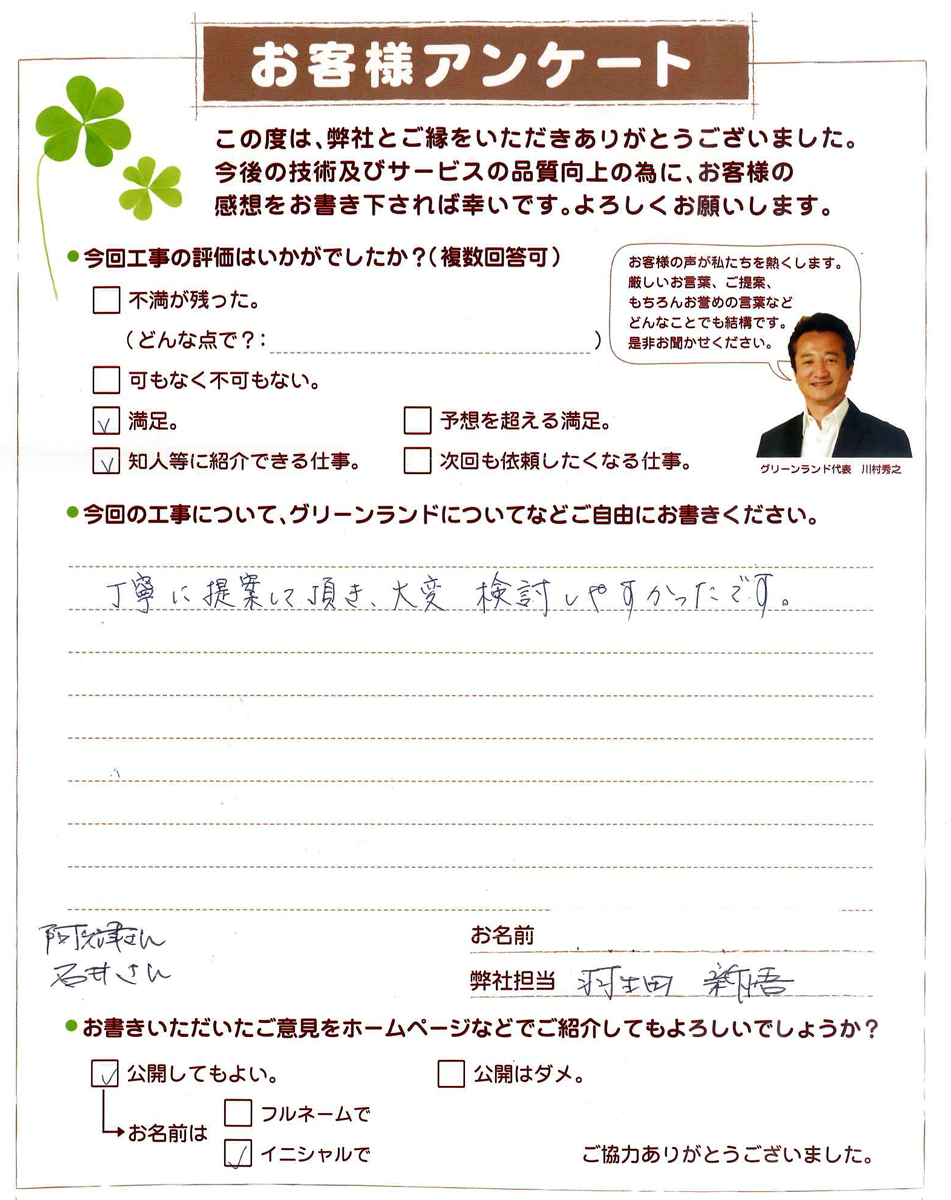 お客様アンケート
この度は、弊社とご縁をいただきありがとうございました。
今後の技術及びサービスの品質向上の為に、お客様の
感想をお書き下されば幸いです。よろしくお願いします。
●今回工事の評価はいかがでしたか？（複数回答可）
お客様の声が私たちを熱くします。
厳しいお言葉、ご提案、
もちろんお誉めの言葉など
どんなことでも結構です。
是非お聞かせください。
不満が残った。
（どんな点で？：　）
可もなく不可もない。
満足。
予想を超える満足。
知人等に紹介できる仕事。
次回も依頼したくなる仕事。
グリーンランド代表　川村秀之
●今回の工事について、グリーンランドについてなどご自由にお書きください。
丁寧に提案して頂き、大変 検討しやすかったです。
阿久津さん
石井さん
お名前
弊社担当 羽生田 新悟
●お書きいただいたご意見をホームページなどでご紹介してもよろしいでしょうか？
公開してもよい。
公開はダメ。
お名前は
フルネームで
イニシャルで
ご協力ありがとうございました。